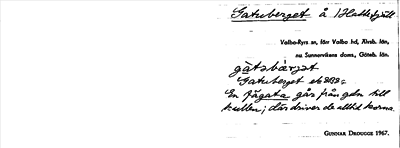 Gatuberget å Hattefjäll
Valbo-Ryrs sn, förr Valbo hd, Älvsb. län,
nu Sunnervikens doms., Göteb. län.
gàtəbärjət
Gatuberget ek 8B9c
En fägata går från gdn till
kullen; där driver de alltid korna.
GUNNAR DROUGGE 1967.